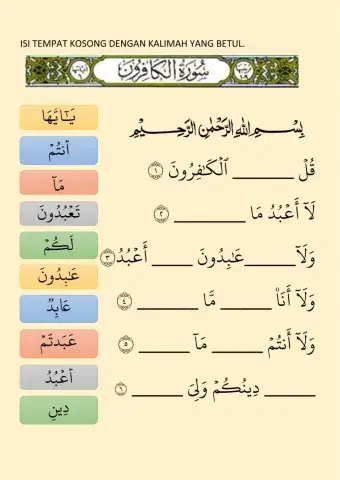 ISI TEMPAT KOSONG DENGAN KALIMAH YANG BETUL.
سُورَةُ الْكَافِرُونَ
يَـٰٓأَيُّهَا
أَنتُمْ
مَآ
تَعْبُدُونَ
لَكُمْ
عَـٰبِدُونَ
عَابِدٌ
عَبَدتُّمْ
أَعْبُدُ
دِينِ
بِسْمِ اللهِ الرَّحْمٰنِ الرَّحِيْمِ
قُلْ ________ ٱلْكَـٰفِرُونَ ١
لَآ أَعْبُدُ مَا _________ ٢
وَلَآ _______ عَـٰبِدُونَ _____ أَعْبُدُ ٣
وَلَآ أَنَا۠ ________ مَّا ________ ٤
وَلَآ أَنتُمْ _______ مَآ _______ ٥
_______ دِينُكُمْ وَلِىَ _______ ٦